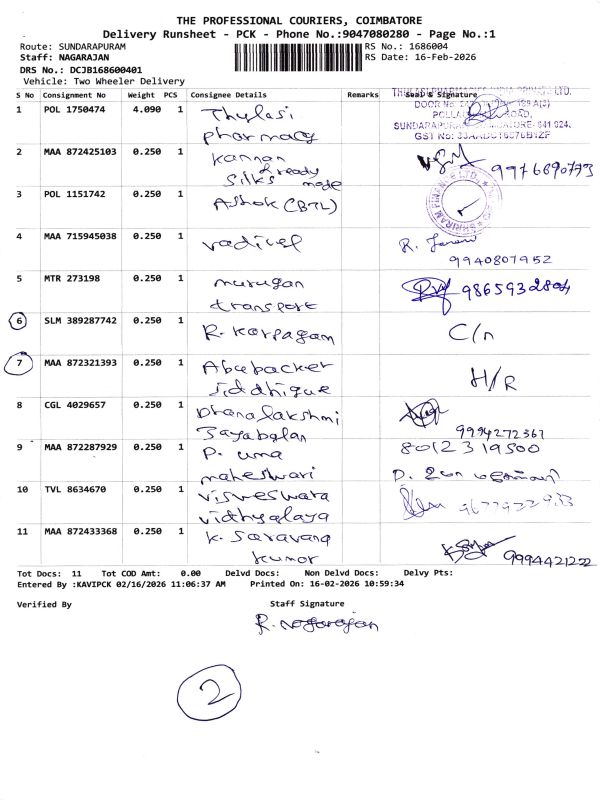 THE PROFESSIONAL COURIERS, COIMBATORE
Delivery Runsheet - PCK - Phone No.:9047080280 - Page No.:1
Route: SUNDARAPURAM RS No.: 1686004
Staff: NAGARAJAN RS Date: 16-Feb-2026
DRS No.: DCJB168600401
Vehicle: Two Wheeler Delivery
S No Consignment No Weight PCS Consignee Details Remarks Seal & Signature
1 POL 1750474 4.090 1 Thulasi
pharmacy
2 MAA 872425103 0.250 1 Kannan 9976890773
silks & ready made
3 POL 1151742 0.250 1 Ashok (BTL)
4 MAA 715945038 0.250 1 vadivel
9940807952
5 MTR 273198 0.250 1 murugan
transport
6 SLM 389287742 0.250 1 R. Karpagam C/n
7 MAA 872321393 0.250 1 Abubacker H/R
siddhique
8 CGL 4029657 0.250 1 Dhanalakshmi
Jayabalan 9994272361
9 MAA 872287929 0.250 1 P. uma 8012319500
maheswari
10 TVL 8634670 0.250 1 visweswara
vidhyalaya
11 MAA 872433368 0.250 1 K. Saravana
kumar 9994421222
Tot Docs: 11 Tot COD Amt: 0.00 Delvd Docs: Non Delvd Docs: Delvy Pts:
Entered By :KAVIPCK 02/16/2026 11:06:37 AM Printed On: 16-02-2026 10:59:34
Verified By Staff Signature
R. Nagarajan
2